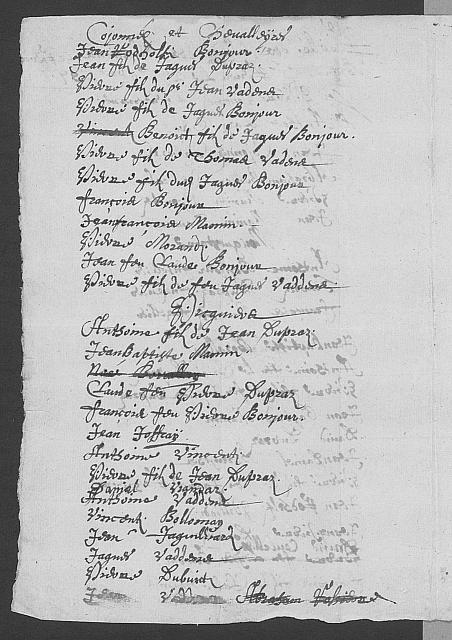 et Chevalleyres
Jean Bonjour
Jean fil de Jaques Dupraz
Pierre fil du Jean Vadene
Pierre fil de Jaques Bonjour
Benoict fil de Jaques Bonjour.
Pierre fil de Thomas Vadene
Pierre fil Jaques Bonjour
françois Bonjour
Jeanfrançois Mamin
Pierre Morand
Jean feu Claude Bonjour
Pierre fil de feu Jaques Vaddene
Picquiere
Anthoine fil de Jean Dupraz
Jean Baptiste Mamin
Claude feu Pierre Dupraz
françois feu Pierre Bonjour.
Jean Joffray
Anthoine Vincent
Pierre fil de Jean Dupraz
Daniel
Anthoine Vaddene
Vincent Bollomay
Jean Jaquilliard
Jaques Vaddene
Pierre Dubuict
Jean Vaddene Abraham